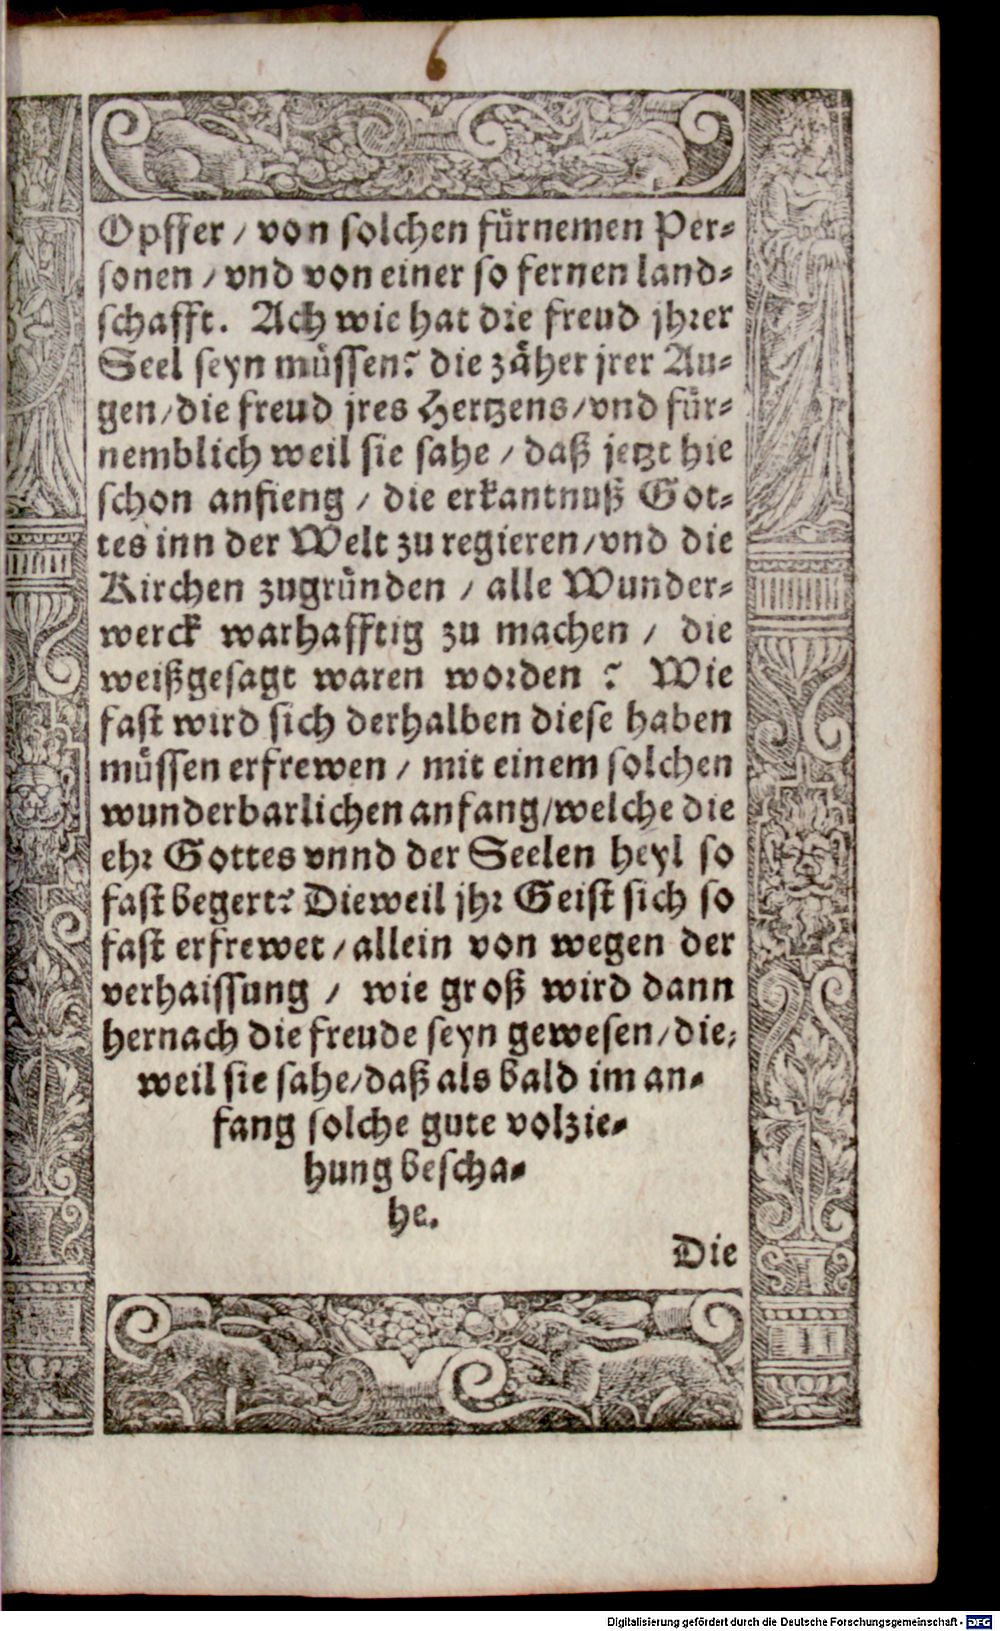 6
Opffer / von solchen fürnemen Per-
sonen / vnd von einer so fernen land-
schafft. Ach wie hat die freud jhrer
Seel seyn müssen? die zäher jrer Au-
gen / die freud jres Hertzens / vnd für-
nemblich weil sie sahe / daß jetzt hie
schon anfieng / die erkantnuß Got-
tes inn der Welt zu regieren / vnd die
Kirchen zugründen / alle Wunder-
werck warhafftig zu machen / die
weißgesagt waren worden ? Wie
fast wird sich derhalben diese haben
müssen erfrewen / mit einem solchen
wunderbarlichen anfang / welche die
ehr Gottes vnnd der Seelen heyl so
fast begert? Dieweil jhr Geist sich so
fast erfrewet / allein von wegen der
verhaissung / wie groß wird dann
hernach die freude seyn gewesen / die-
weil sie sahe / daß als bald im an-
fang solche gute volzie-
hung bescha-
he.
Die
Digitalisierung gefördert durch die Deutsche Forschungsgemeinschaft - DFG